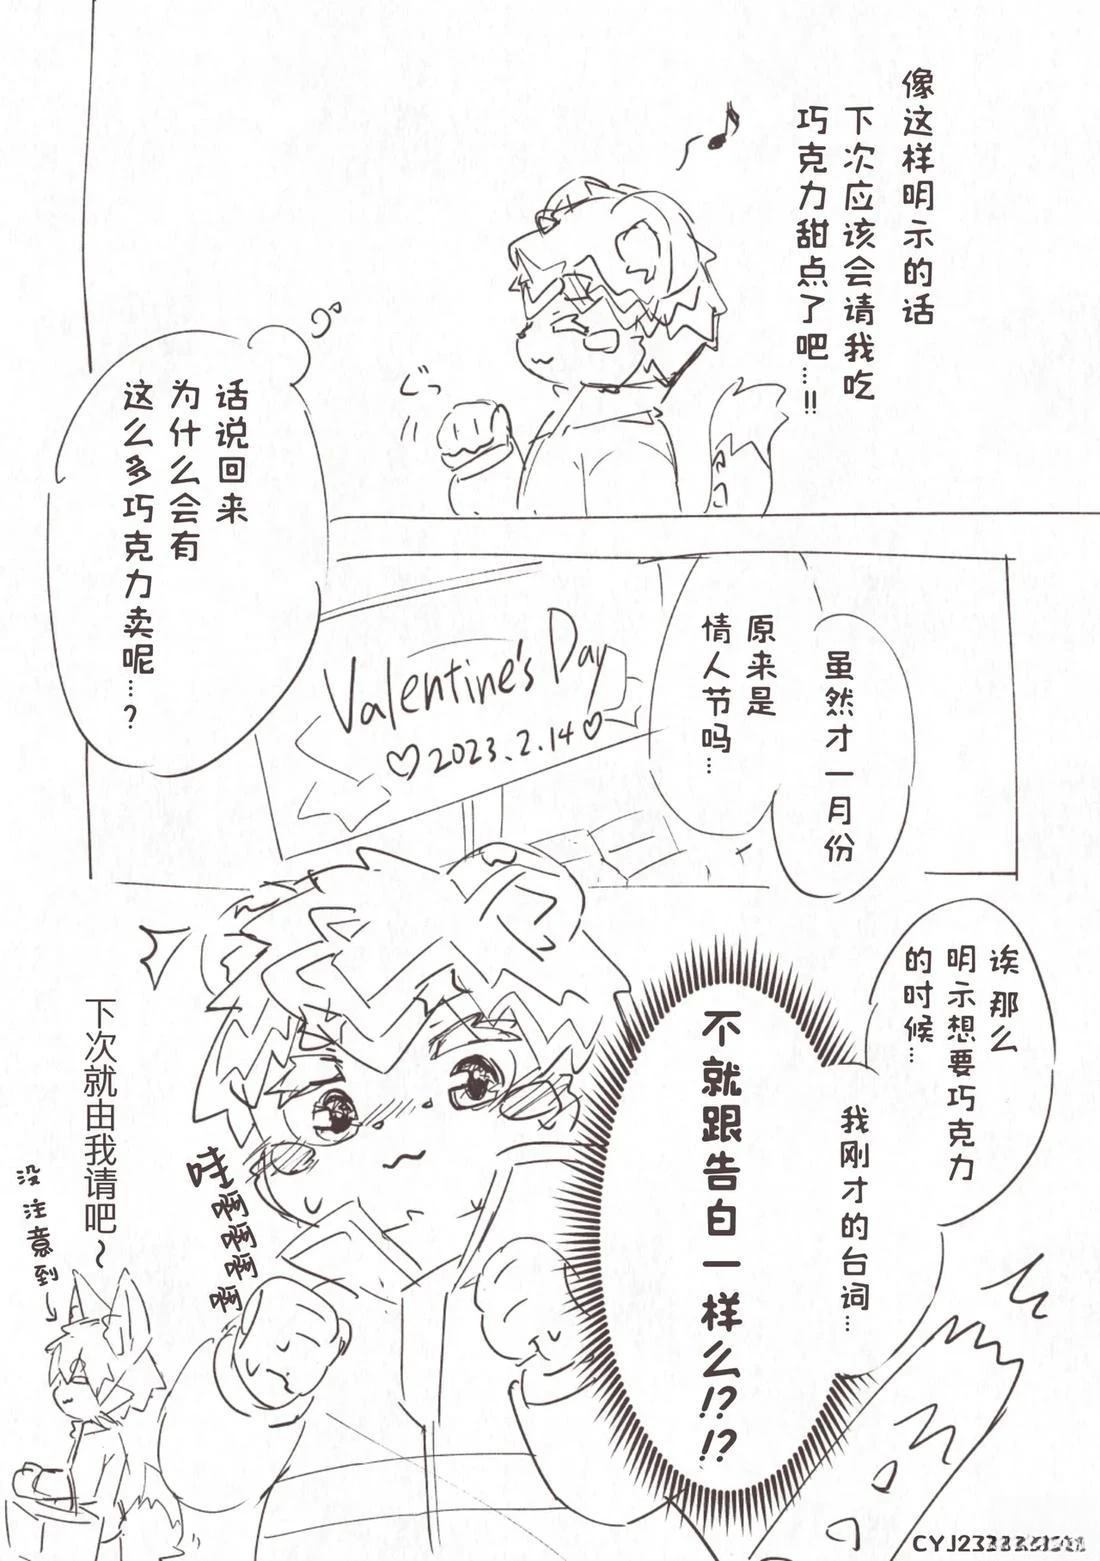 像这样明示的话
下次应该会请我吃
巧克力甜点了吧…!!
ぐっ
话说回来
为什么会有
这么多巧克力卖呢…?
Valentine's Day
♡2023.2.14♡
虽然才一月份
原来是
情人节吗…
诶 那么
明示想要巧克力
的时候…
我刚才的台词…
不就跟告白一样么!?!?
哇啊啊啊啊
下次就由我请吧~
没注意到